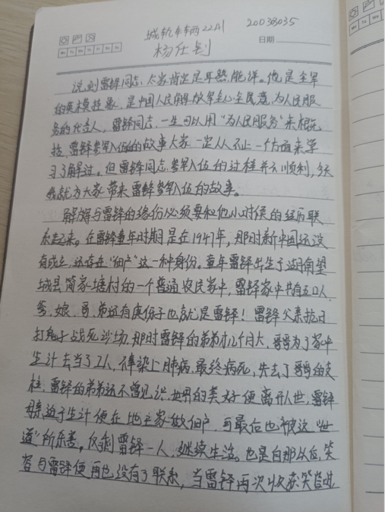 城轨车辆2221 20038035
杨仕钊 日期
说到雷锋同志,大家肯定是耳熟能详。他是全军
的模范,是中国人民解放军全心全意为人民服
务的代言人,雷锋同志一生可以用“为人民服务”来概
括,雷锋参军入伍的故事大家一定从不止一个方面来学
习了解过。但雷锋同志参军入伍的过程并不顺利,今天
我就为大家带来雷锋参军入伍的故事。
解锋与雷锋的缘份必须要和他小时候的经历联
系起来。在雷锋童年时期是在1941年,那时新中国还没
有成立,还存在“佃户”这一种身份。童年雷锋出生于湖南望
城县简家塘村的一个普通农民家中,雷锋家中共有五口人
爷、娘、哥、弟还有庚伢子也就是雷锋!雷锋父亲抗日
打鬼子战死沙场,那时雷锋的弟弟几个月大,哥哥为了家中
生计去当了工人,传染上肺病,最终病死,失去了哥哥的支
柱,雷锋的弟弟还不曾见识世界的美好便离开人世,雷锋
母亲迫于生计便在地主家做佃户,可最后也被这“世
道”所杀害,仅剩雷锋一人,继续生活。也是自那以后,笑
容与雷锋便再也没有了联系,当雷锋再次收获笑容